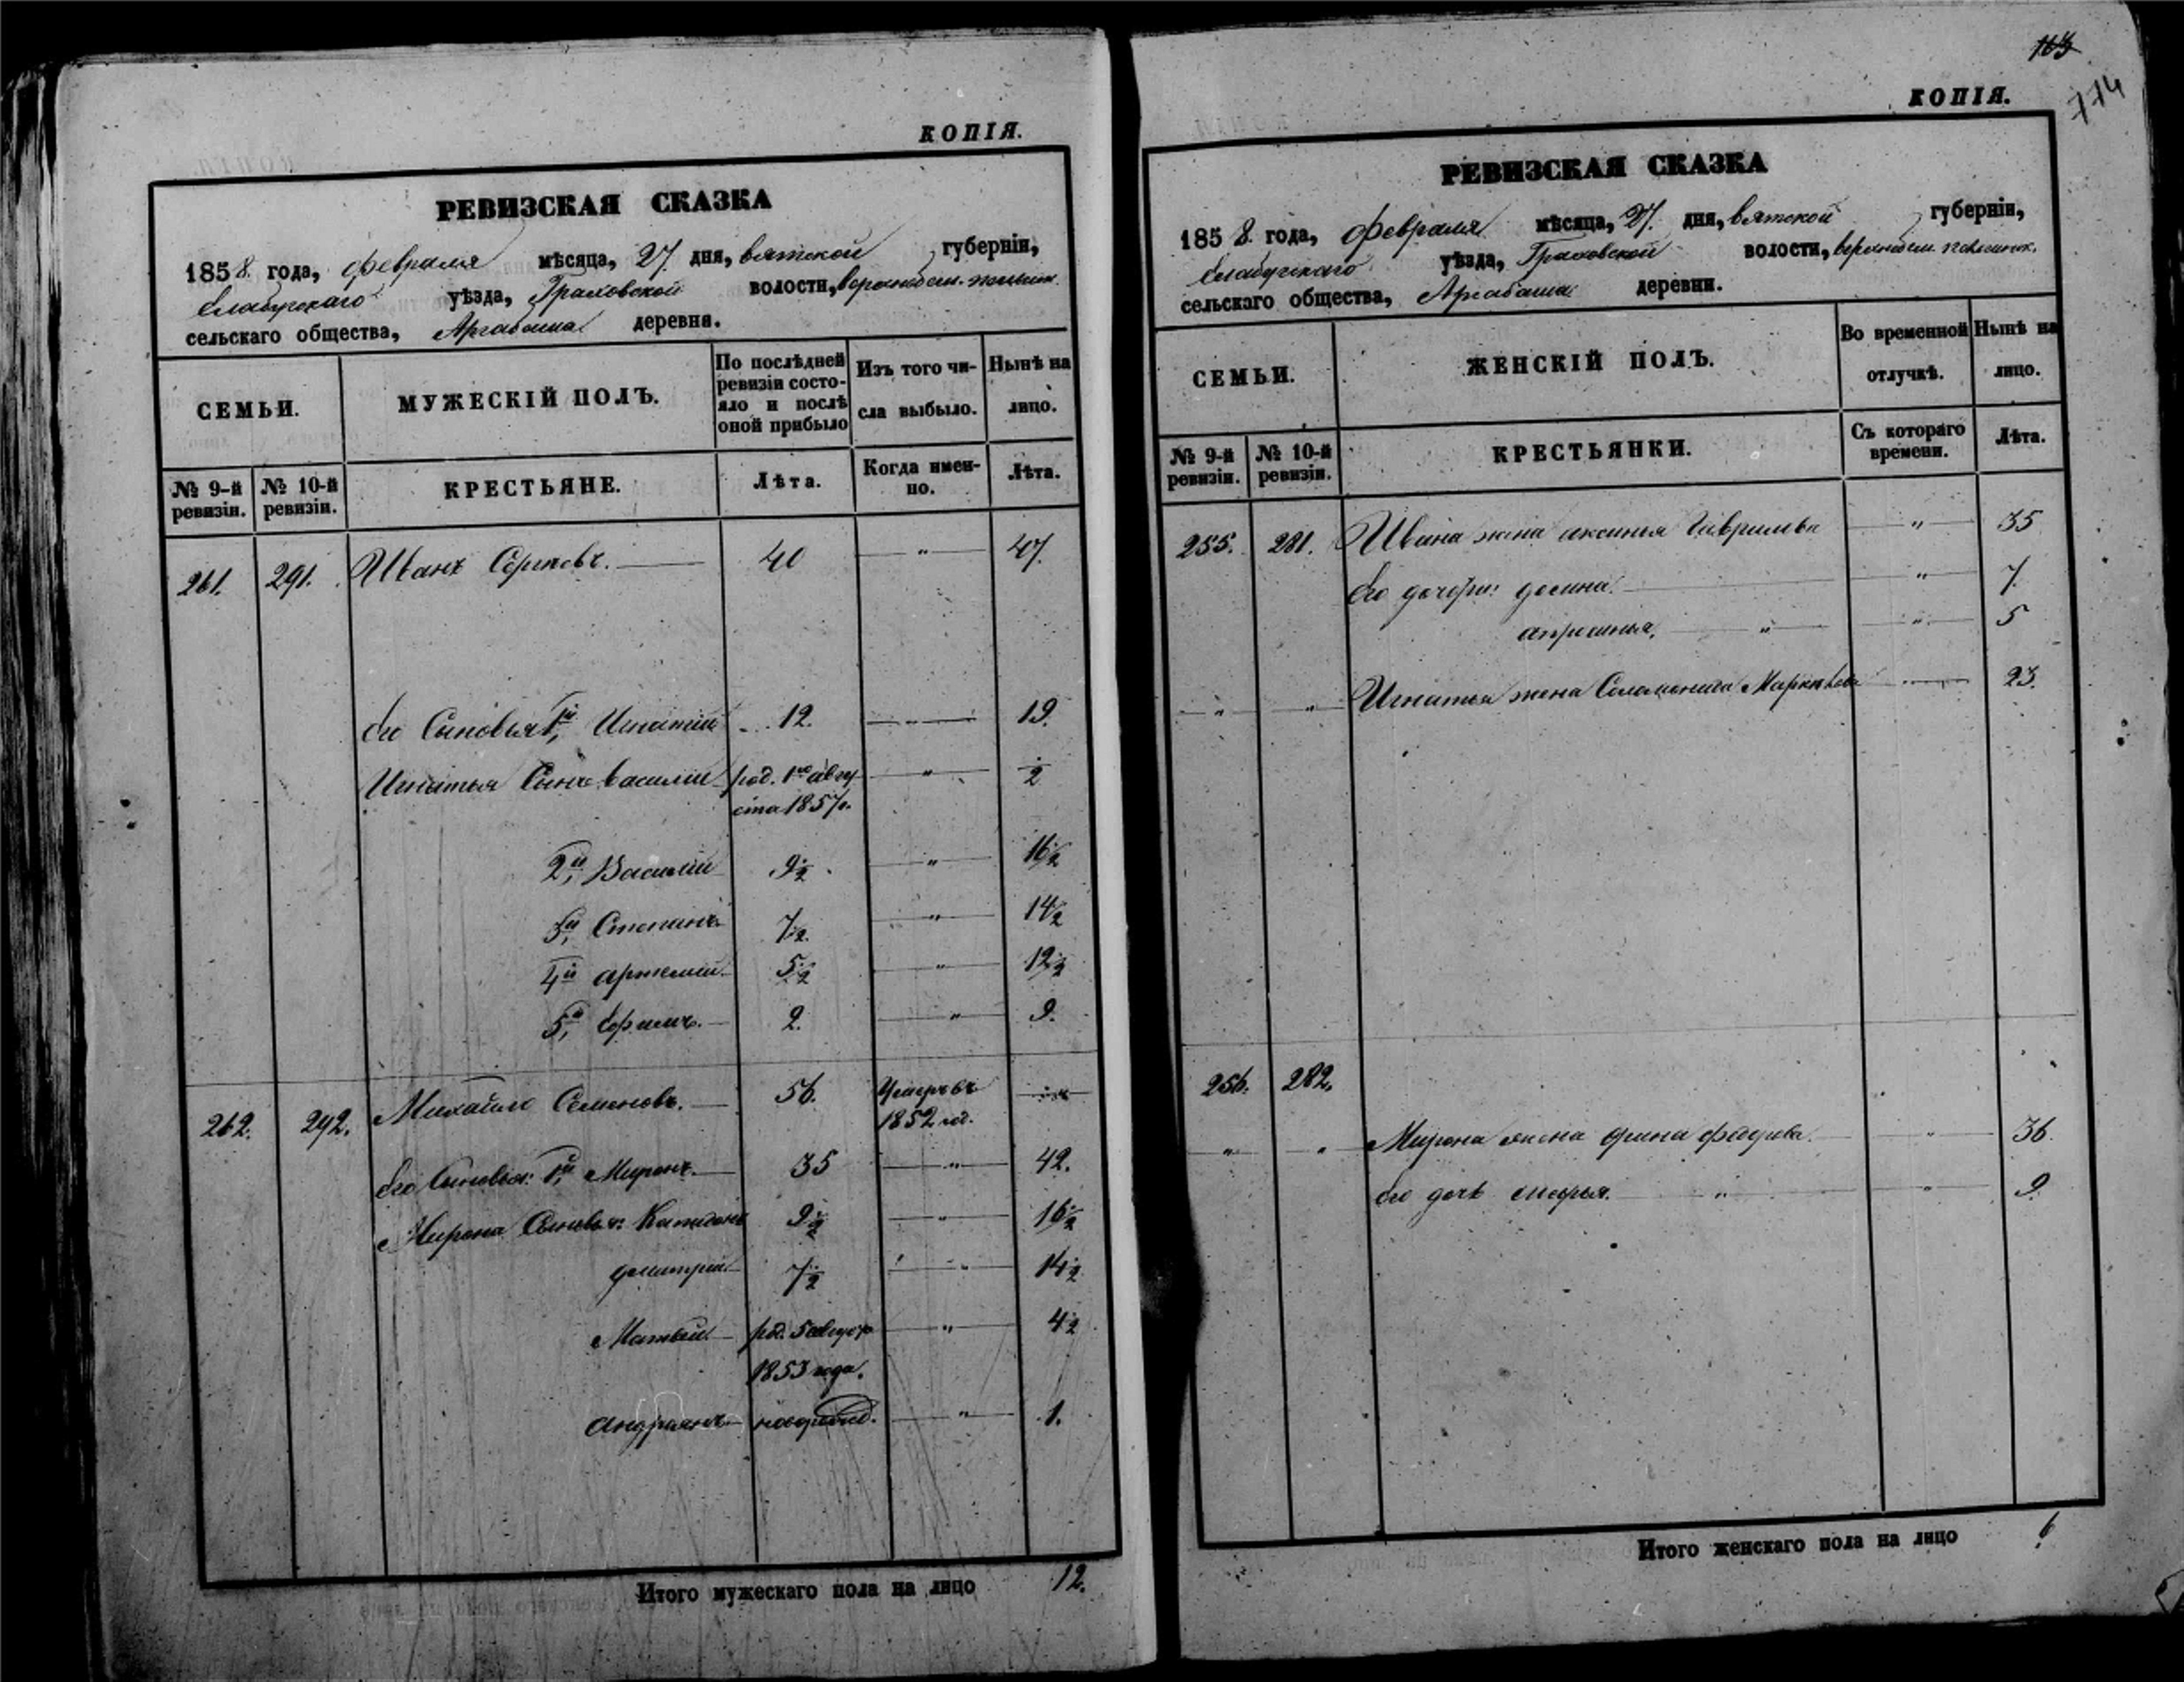 КОПІЯ.
РЕВИЗСКАЯ СКАЗКА
1858. года, февраля мѣсяца, 27. дня, вятской губерніи,
Елабужскаго уѣзда, Граховской волости,
сельскаго общества, Аргабаша деревни.
СЕМЬИ. МУЖЕСКІЙ ПОЛЪ. По послѣдней ревизіи состояло и послѣ оной прибыло Изъ того числа выбыло. Нынѣ на лицо.
№ 9-й ревизіи. № 10-й ревизіи. КРЕСТЬЯНЕ. Лѣта. Когда именно. Лѣта.
261. 291. Иванъ Сергѣевъ. 40 " 47.
его Сыновья 1й, Игнатій 12. " 19.
Игнатья Сынъ василій род. 1го авгу " ½
ста 1857г.
2й, Василій 9½ " 16½
3й, Степанъ 7½ " 14½
4й артемій 5½ " 12½
5й, Ефимъ. 2. " 9.
262. 292. Михайло Семеновъ. 56. Умеръ въ "
1852 год.
его Сыновья: 1й, Миронъ. 35 " 42.
Мирона Сыновья: 9½ " 16½
дмитрій 7½ " 14½
Матвѣй род. 5 " 4½
1853 года.
андреянъ новорожд. " 1.
Итого мужескаго пола на лицо 12.
163
774
КОПІЯ.
РЕВИЗСКАЯ СКАЗКА
1858. года, февраля мѣсяца, 27. дня, вятской губерніи,
Елабужскаго уѣзда, Граховской волости,
сельскаго общества, Аргабаша деревни.
СЕМЬИ. ЖЕНСКІЙ ПОЛЪ. Во временной отлучкѣ. Нынѣ на лицо.
№ 9-й ревизіи. № 10-й ревизіи. КРЕСТЬЯНКИ. Съ котораго времени. Лѣта.
255. 281. Ивана жена аксинья Гаврилова " 35
его дочери: " 7.
апросинья, " " 5
" " Игнатья жена Соломонида " 23.
256. 282.
" " Мирона жена орина федорова. " 36.
его дочь марья. " " 9.
Итого женскаго пола на лицо 6